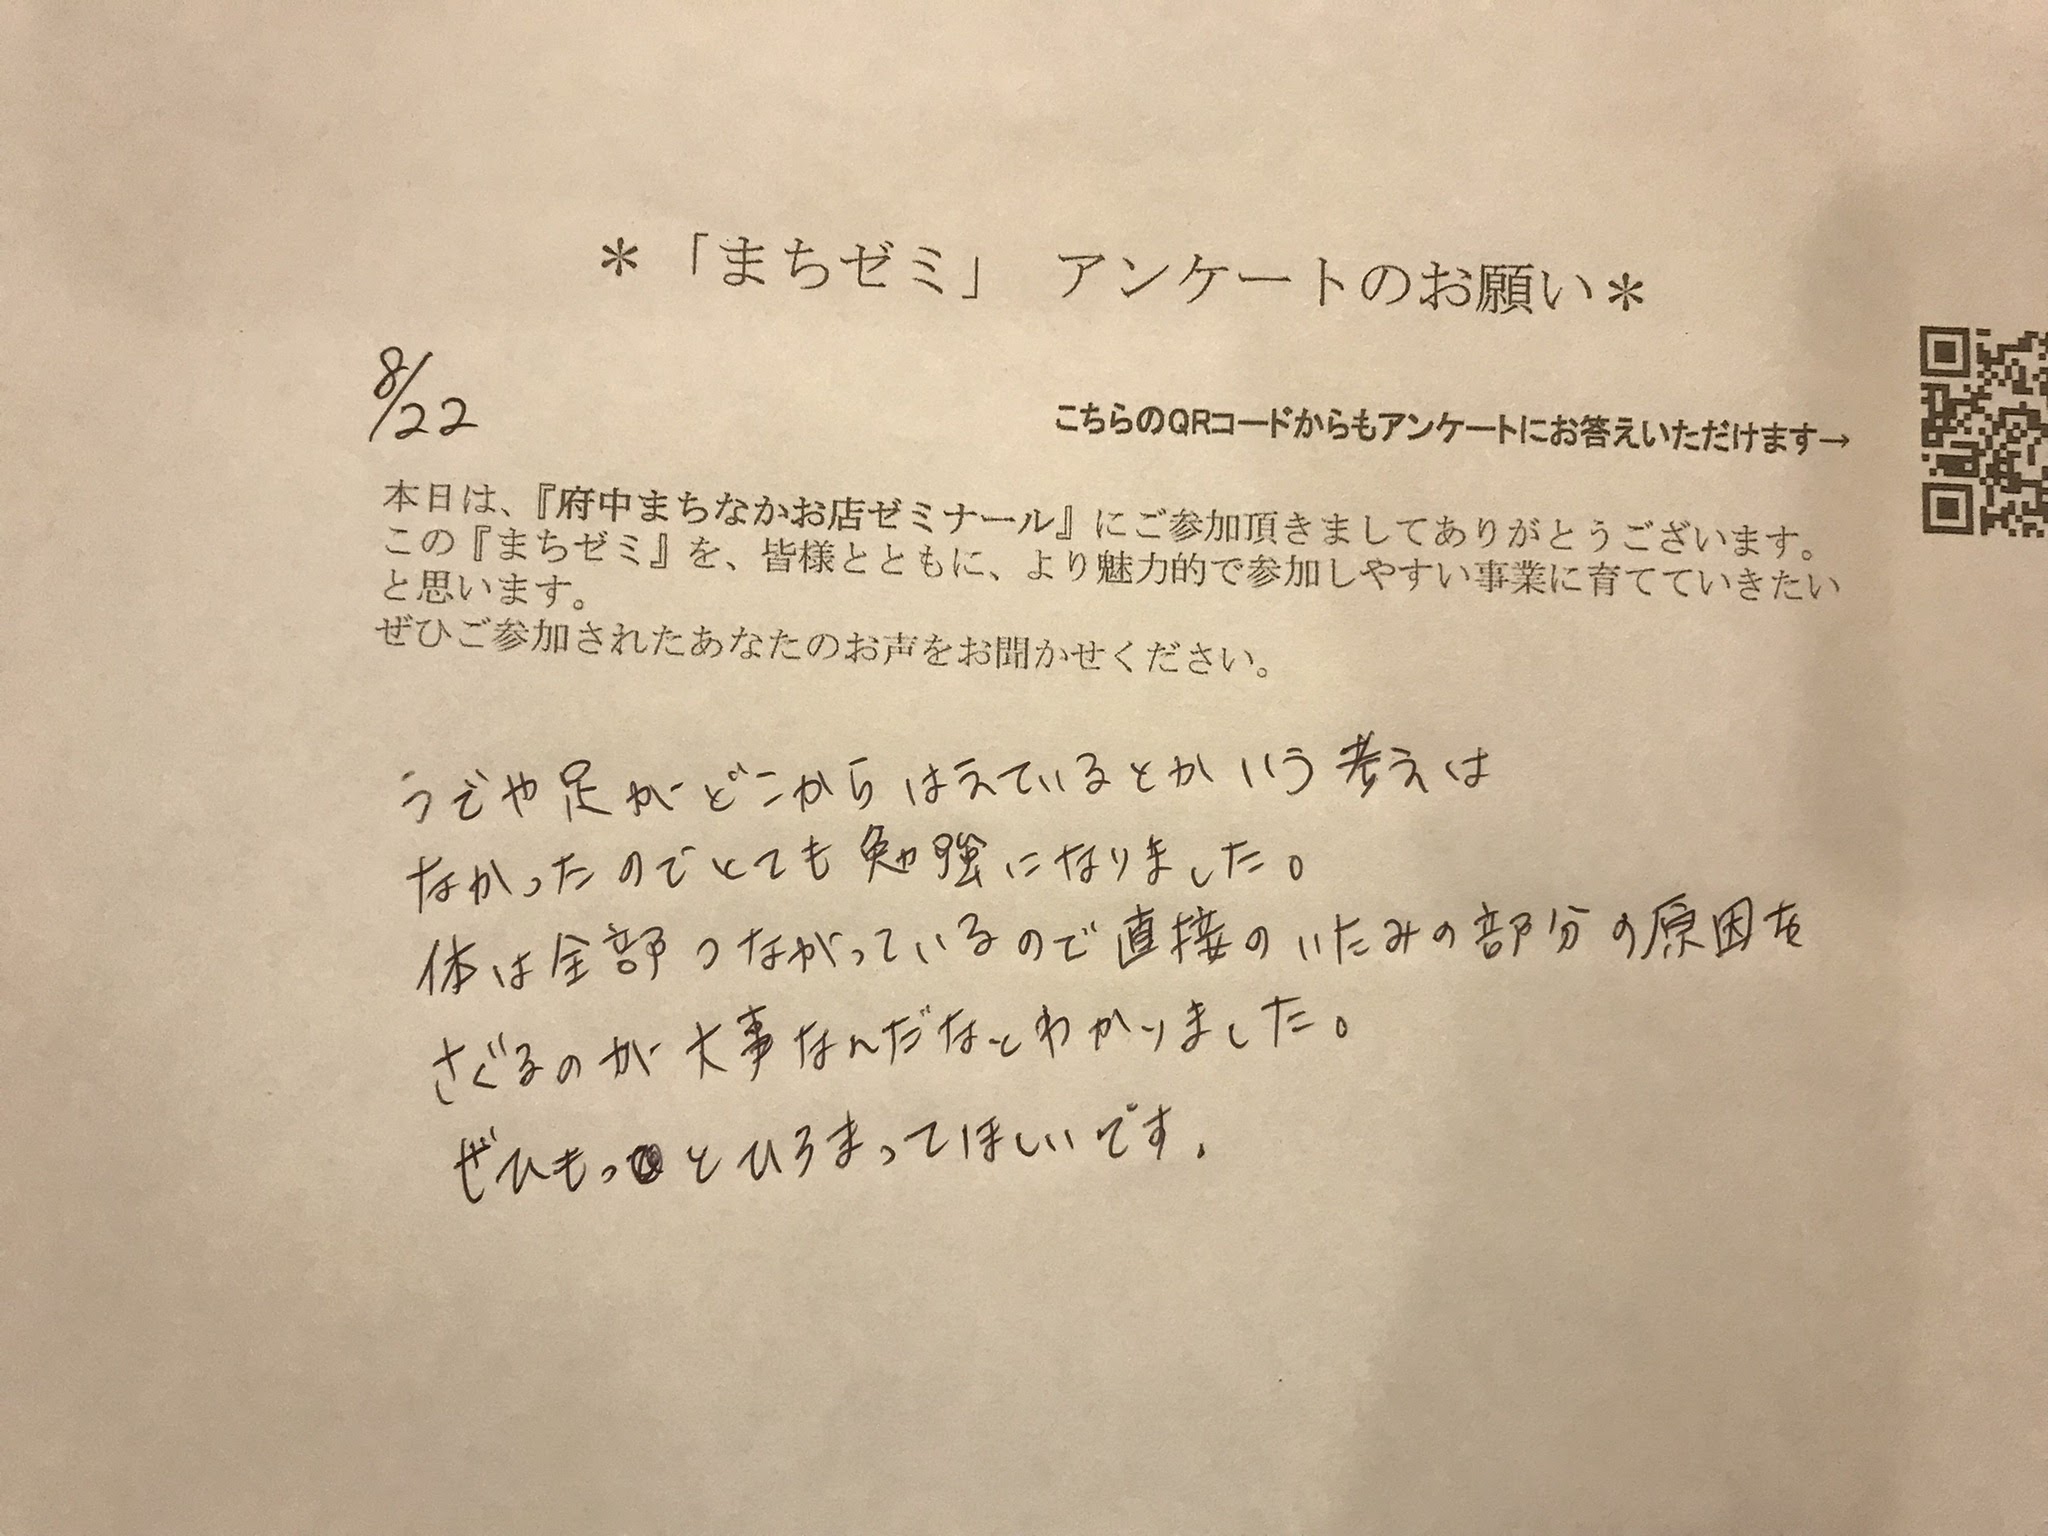 ＊「まちゼミ」 アンケートのお願い＊
8/22
こちらのQRコードからもアンケートにお答えいただけます→
本日は、『府中まちなかお店ゼミナール』にご参加頂きましてありがとうございます。
この『まちゼミ』を、皆様とともに、より魅力的で参加しやすい事業に育てていきたい
と思います。
ぜひご参加されたあなたのお声をお聞かせください。
うでや足がどこからはえているとかいう考えは
なかったのでとても勉強になりました。
体は全部つながっているので直接のいたみの部分の原因を
さぐるのが大事なんだなとわかりました。
ぜひもっとひろまってほしいです.